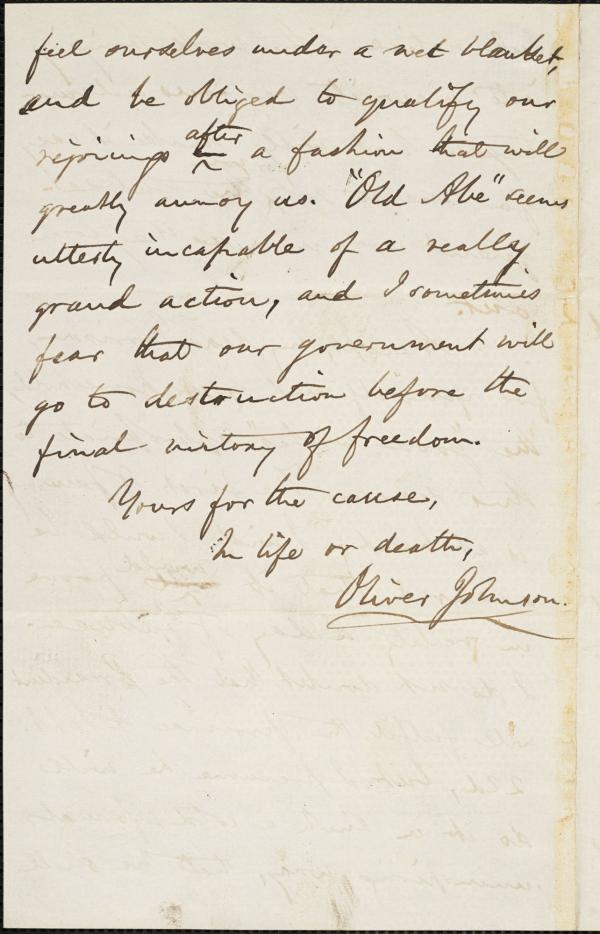 feel ourselves under a wet blanket,
and be obliged to qualify our
rejoicings after a fashion that will
greatly annoy us. "Old Abe" seems
utterly incapable of a really
grand action, and I sometimes
fear that our government will
go to destruction before the
final victory of freedom.
Yours for the cause,
In life or death,
Oliver Johnson.